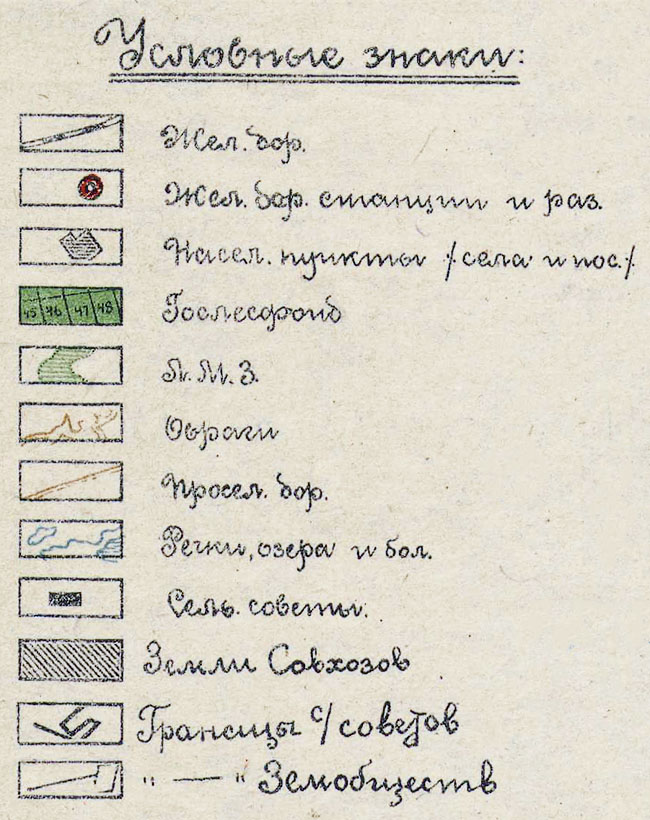 Условные знаки:
Жел. дор.
Жел. дор. станции и раз.
Насел. пункты /села и пос./
45 46 47 48 Гослесфонд
Л. М. З.
Овраги
Просел. дор.
Речки, озера и бол.
Сель. советы.
Земли Совхозов
Границы с/советов
" — " Земобществ